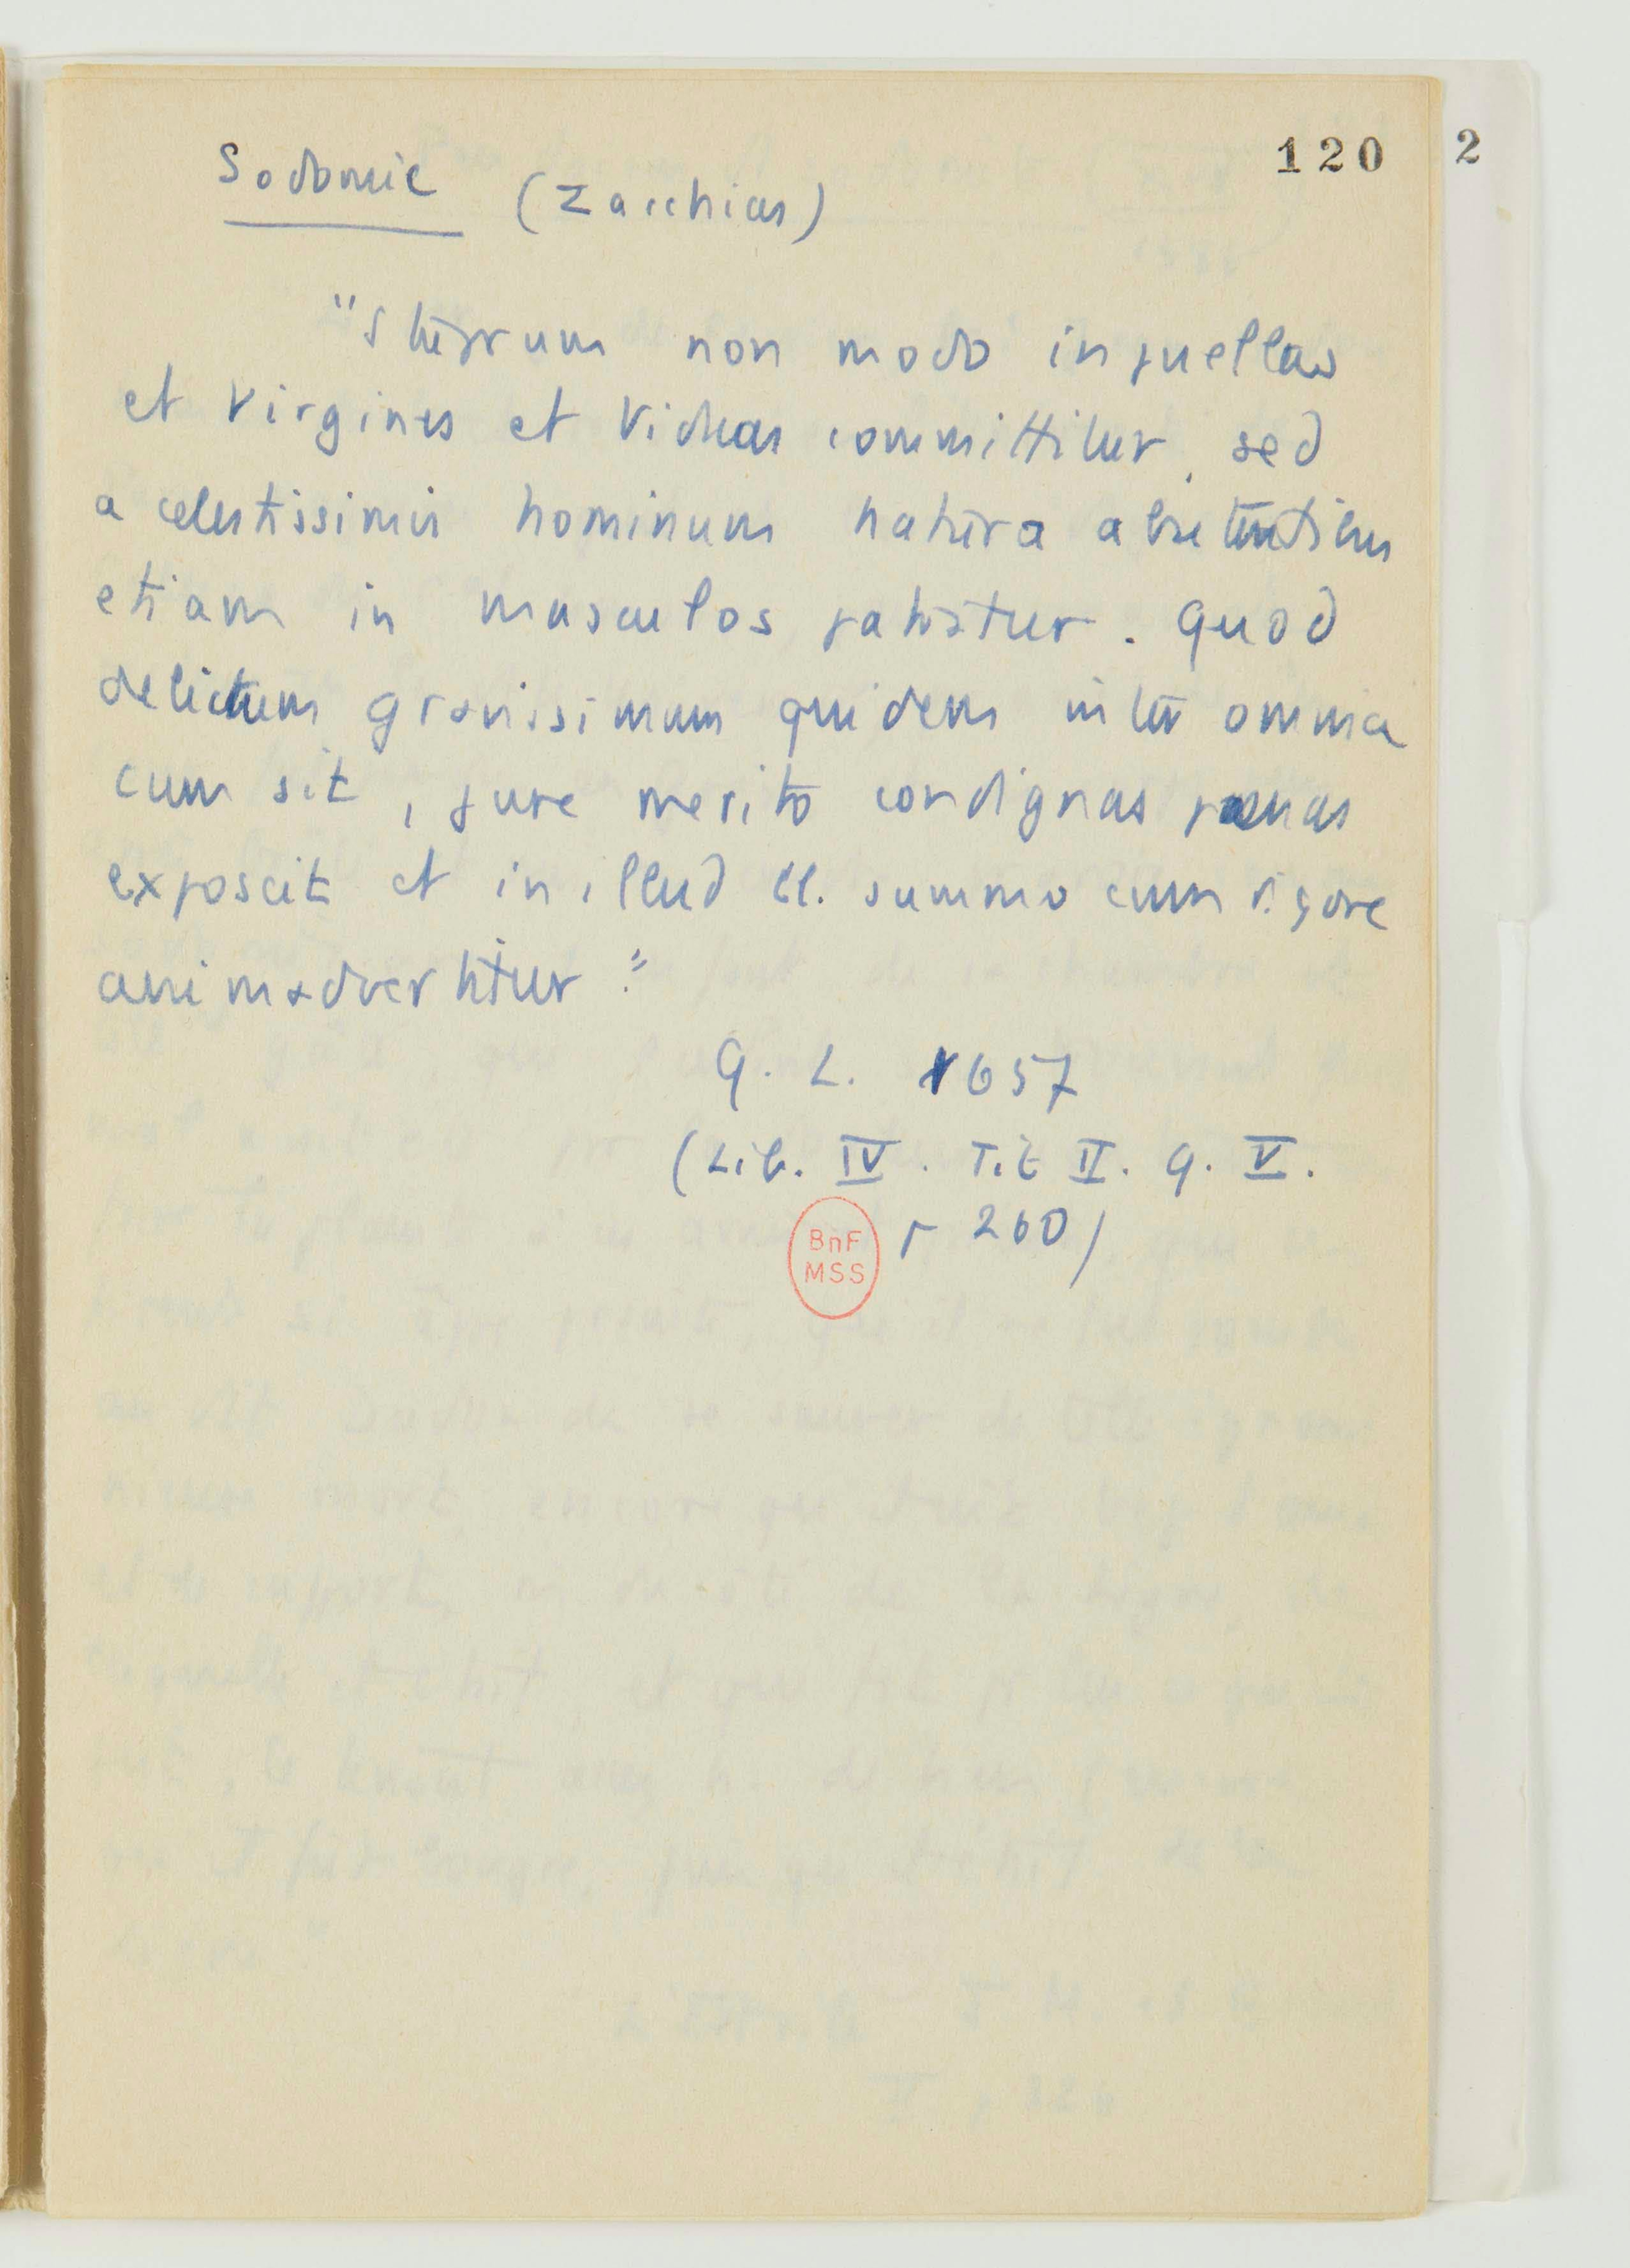 120 2
Sodomie (Zacchias)
"Stuprum non modo in puellas
et virgines et viduas committitur, sed
a celestissimis hominum natura abutentibus
etiam in masculos patratur. Quod
delictum gravissimum quidem inter omnia
cum sit, jure merito condignas pœnas
exposcit et in illud ll. summo cum rigore
animadvertitur."
Q. L. 1657
(Lib. IV. Tit II. q. V.
p 260)
BnF
MSS